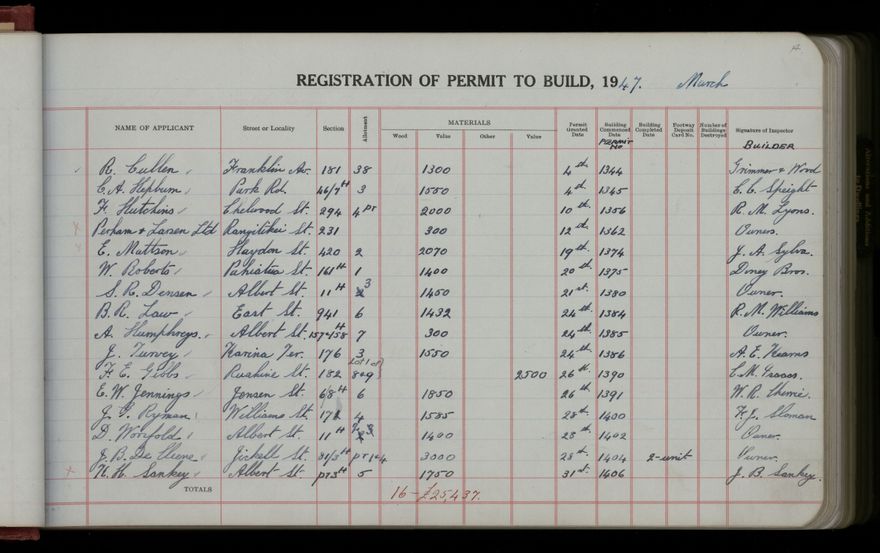 4
REGISTRATION OF PERMIT TO BUILD, 1947. March
NAME OF APPLICANT Street or Locality Section Allotment MATERIALS Wood Value Other Value Permit Granted Date Building Commenced Date PERMIT NO Building Completed Date Footway Deposit Card No. Number of Buildings Destroyed Signature of Inspector BUILDER
R. Cullen Franklin Av. 181 38 1300 4th 1344 Grimmer & Wood
C.A. Hepburn Park Rd. 46/7th 3 1550 4th 1345 C.C. Speight
F. Hutchins Chelwood St. 294 4 pt 2000 10th 1356 R.M. Lyons.
x Perham & Larsen Ltd Rangitikei St. 231 300 12th 1362 Owners.
x E. Mattson Haydon St. 420 2 2070 19th 1374 J.A. Sylva.
W. Roberts Pahiatua St. 161 1 1400 20th 1375 Diney Bros.
S.R. Densem Albert St. 11 3 1450 21st 1380 Owner.
B.R. Law East St. 941 6 1432 24th 1384 R.M. Williams
A. Humphreys. Albert St. 157 & 158 7 300 24th 1385 Owner.
J. Turvey Karina Ter. 176 3 1550 24th 1386 A.E. Kearns
F.E. Gibbs Ruahine St. 182 Lot 1 of 8&9 2500 26th 1390 C.M. Isaacs.
E.W. Jennings Jensen St. 68 6 1850 26th 1391 W.R. Cherrie.
J.G. Ryman Williams St. 4 1585 28th 1400 F.J. Sloman
D. Worsfold Albert St. 11 3 1400 28th 1402 Owner.
J.B. De Jickell St. 31/3 pt 1&4 3000 28th 1404 2-unit Owner.
x H.H. Sankey Albert St. pt 3 5 1750 31st 1406 J.B. Sankey.
TOTALS 16 – £25,437.